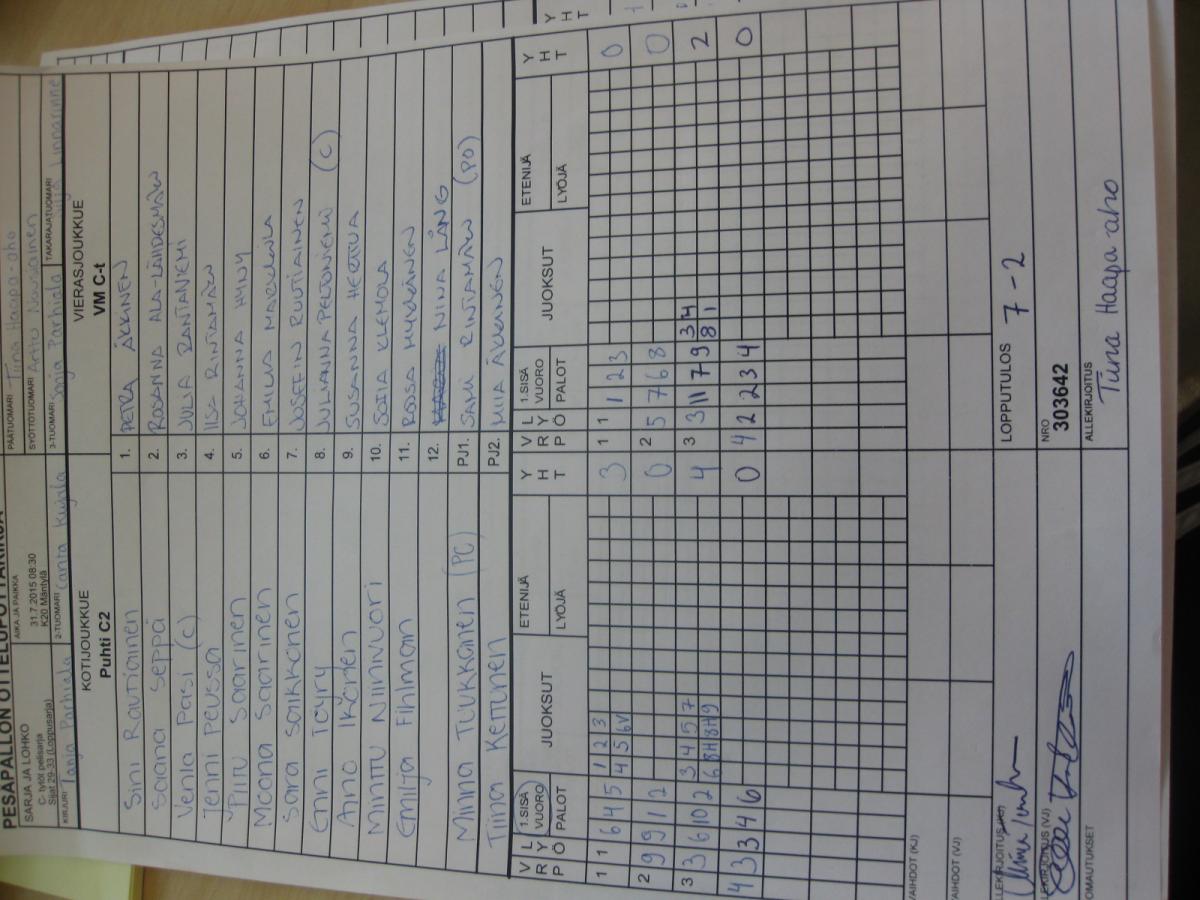 PESÄPALLON OTTELUPÖYTÄKIRJA
SARJA JA LOHKO
C- tytöt pelisarja
Sijat 29-33 (Loppusarja)
AIKA JA PAIKKA
31.7.2015 08:30
K20 Mäntylä
PÄÄTUOMARI Tiina Haapa-aho
SYÖTTÖTUOMARI Arttu Nousiainen
KIRJURI Tanja Parhiala
2-TUOMARI
3-TUOMARI Sonja Parhiala
TAKARAJATUOMARI Linnarinne
KOTIJOUKKUE
Puhti C2
VIERASJOUKKUE
VM C-t
Sini Rautiainen 1. PETRA ÄKKINEN
Saana Seppä 2. ROSANNA ALA-LÄHDESMÄKI
Venla Pasi (C) 3. JULIA RANTANIEMI
Jenni Peussa 4. IISA RINTAMÄKI
Piitu Saarinen 5. JOHANNA HYNY
Moona Saarinen 6. EMILIA
Sara Saikkonen 7. JOSEFIN RUUTIAINEN
Enni Töyry 8. JULIANNA PELTONIEMI (C)
Aino Ikonen 9. SUSANNA HERTTUA
Minttu Niinivuori 10. SOFIA KLEMOLA
Emilja Fihlman 11. ROOSA HYVÄNEN
12. NINA LÅNG
Minna Tuukkanen (PC) PJ1. SAMI RINTAMÄKI (PO)
Tiina Kettunen PJ2. MIIA ÄKKINEN
V R P L Y Ö 1.SISÄ VUORO PALOT JUOKSUT ETENIJÄ LYÖJÄ Y H T V R P L Y Ö 1.SISÄ VUORO PALOT JUOKSUT ETENIJÄ LYÖJÄ Y H T
1 1 6 4 5 1 2 3 3 1 1 1 2 3 0
4 5 6V
2 9 9 1 2 0 2 5 7 6 8 0
3 3 6 10 2 3 4 5 7 4 3 3 11 7 9 3 4 2
6 8H 8H 9 8 1
4 3 3 4 6 0 4 2 2 3 4 0
VAIHDOT (KJ)
VAIHDOT (VJ)
LOPPUTULOS 7 - 2
NRO
303642
ALLEKIRJOITUS
Tiina Haapa-aho
ALLEKIRJOITUS (KJ)
ALLEKIRJOITUS (VJ)
HUOMAUTUKSET